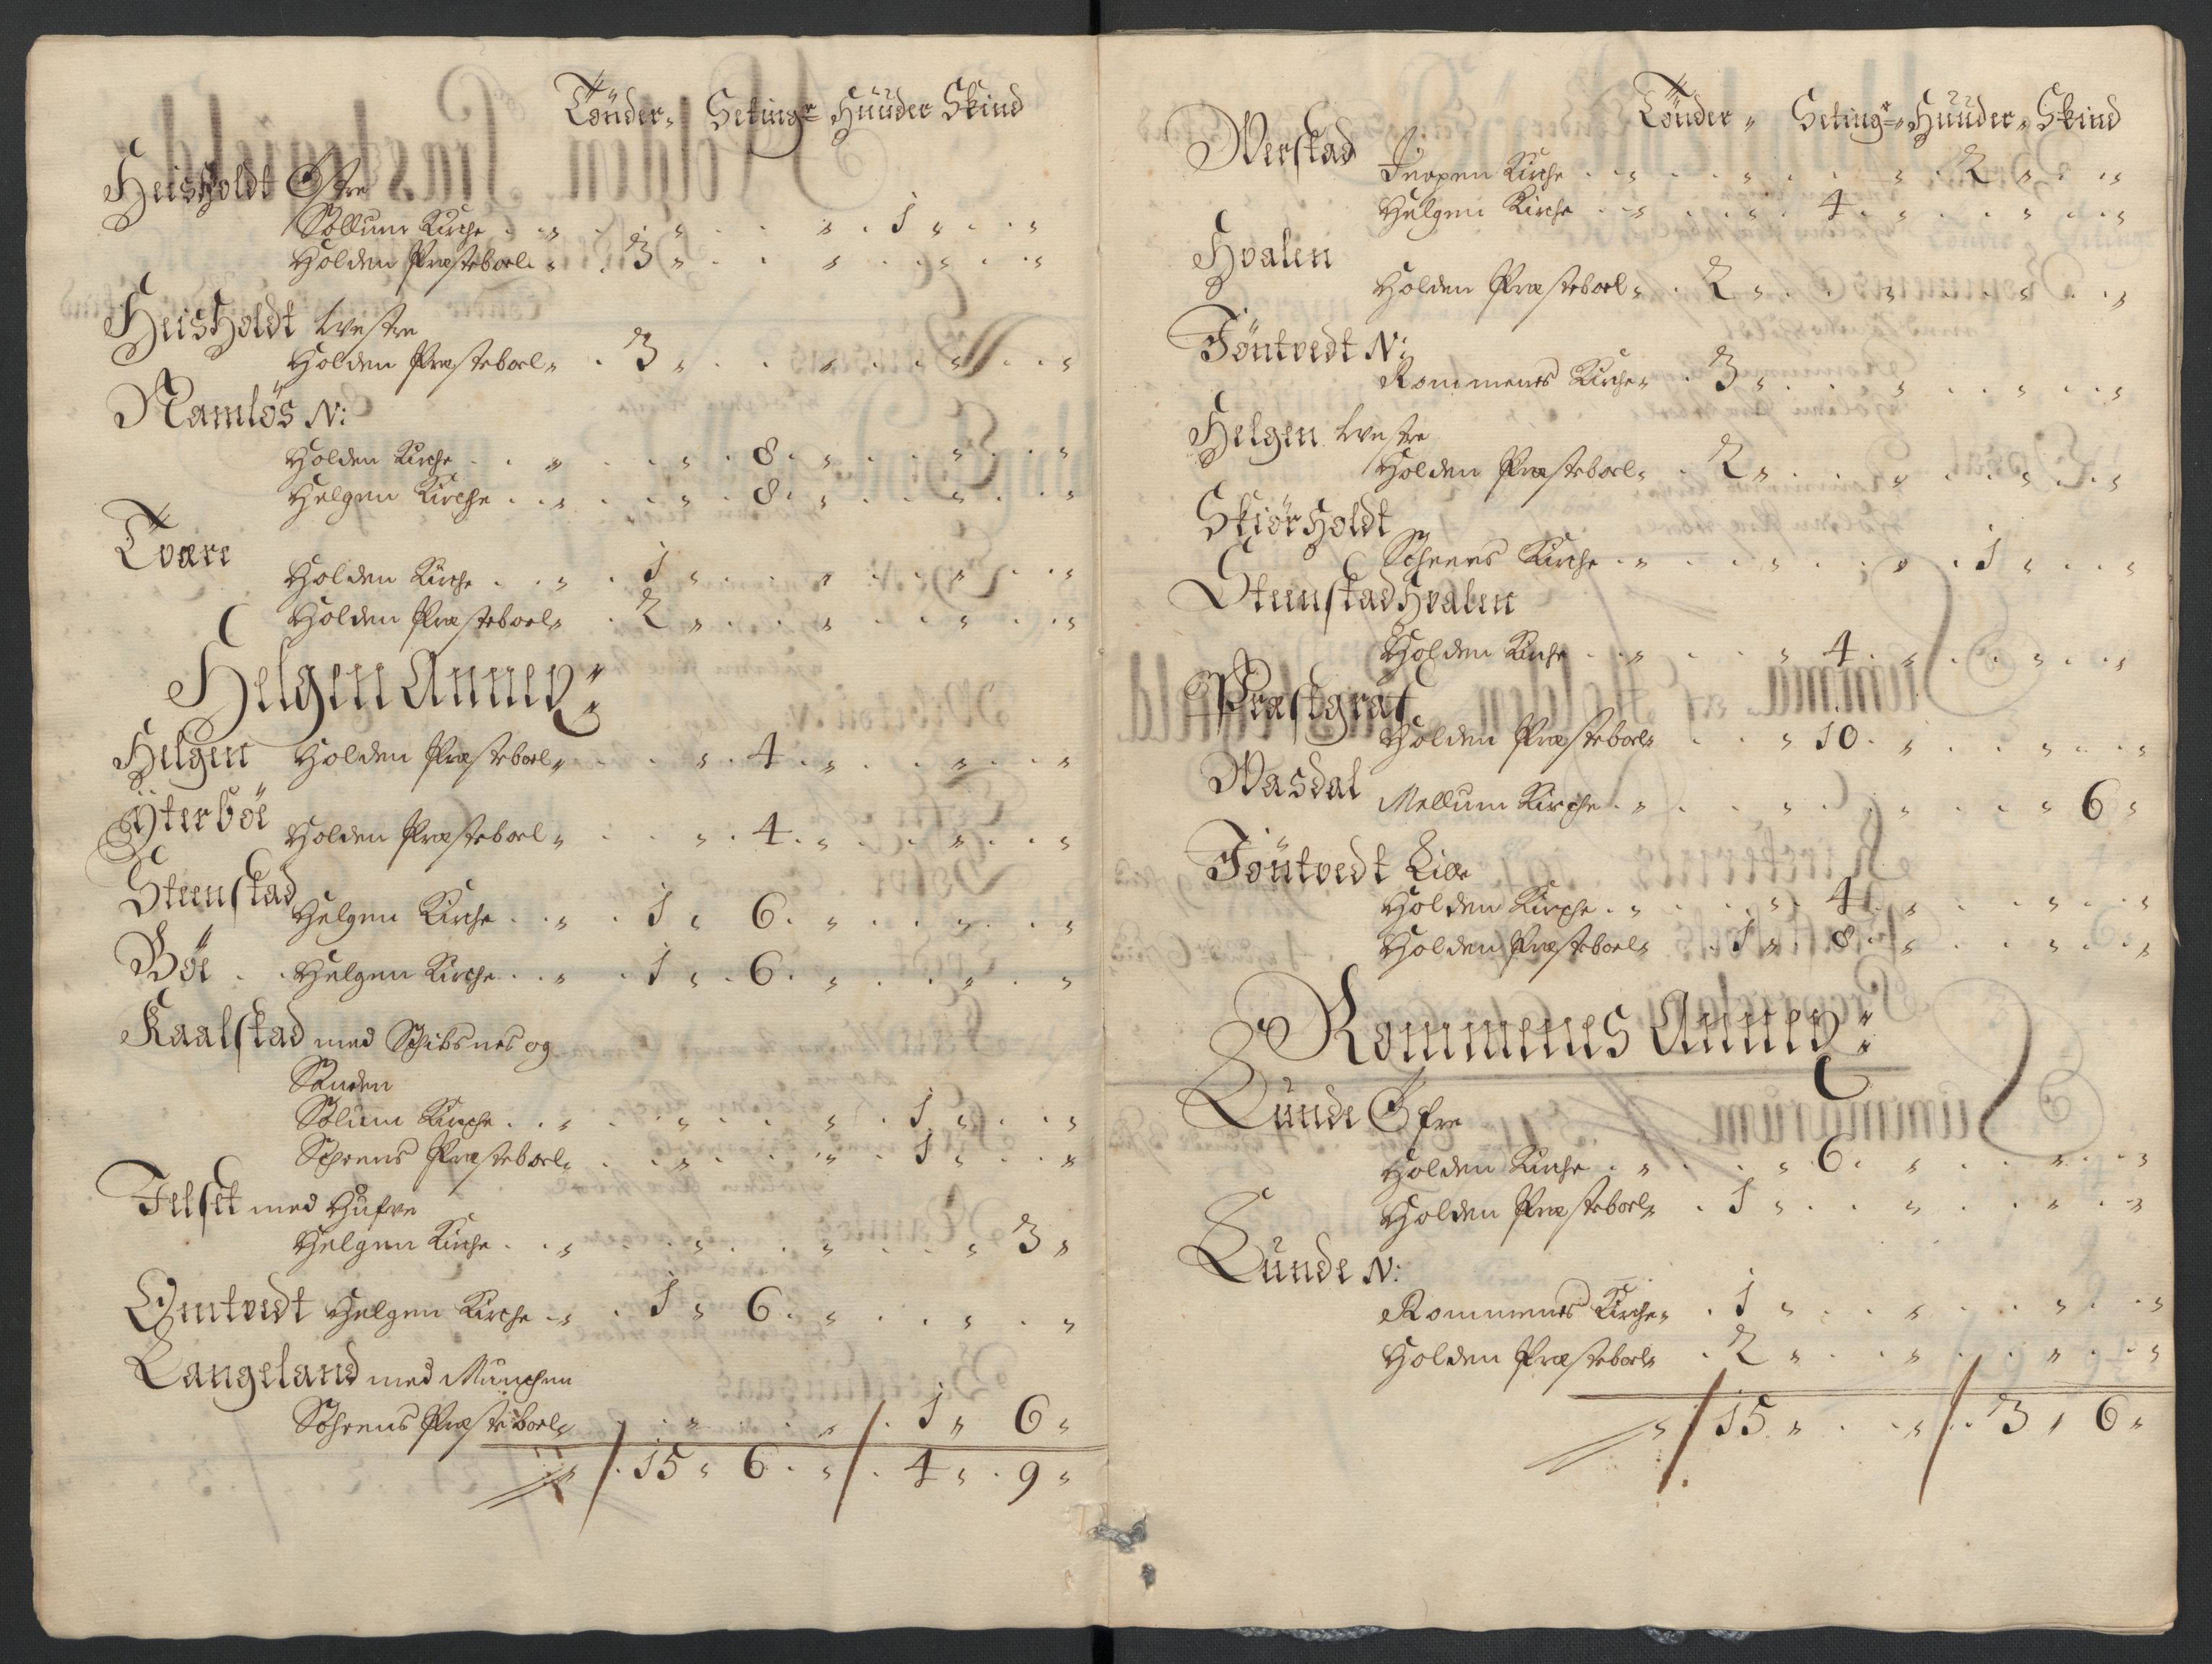 Tönder„ Setinger Huuder Skind
Heisholdt Östre
Sollum Kirche . . „ . „ . . „ . 1 „ . . „
Holden Præsteboel „ . 3 „ . . „ . . „ . . „
Heisholdt Westre
Holden Præsteboel „ . 3 „ . . „ . . „ . . „
Namlös N:
Holden Kirche . . „ . . „ . 8 . „ . . „ . . „
Helgen Kirche . . „ . . „ . 8 . „ . . „ . . „
Tvære
Holden Kirche . . „ . 1 „ . . „ . . „ . . „
Holden Præsteboel „ . 2 „ . . „ . . „ . . „
Helgen Annex:
Helgen Holden Præsteboel „ . . „ . 4 . „ . . „ . . „
Ÿterböe Holden Præsteboel „ . . „ . 4 . „ . . „ . . „
Steenstad Helgen Kirche . . „ . 1 „ 6 . „ . . „ . . „
Böe . . Helgen Kirche . . „ . 1 „ . 6 . „ . . „ . „
Kaalstad med Schibsnes og
Sanden
Solum Kirche . . „ . . „ . . „ . 1 „ . . „
Scheens Præsteboel „ . . „ . . „ . 1 „ . . „
Jelset med Hufre
Helgen Kirche . . „ . . „ . . „ . . „ 3 „
Omtvedt Helgen Kirche . „ . 1 „ 6 . „ . . „ . „
Langeland med Munchen
Scheens Præsteboel „ . . „ . . „ . 1 „ 6 „
„ . 15 „ 6 . „ . 4 „ . 9 „
Tönder „ Setinger „ Huuder „ Skind
Werstad
Gierpen Kirche . . „ . . „ . . „ . 2 „ . . „
Helgen Kirche . . „ . . „ . 4 . „ . . „ . . „
Hvalen
Holden Præsteboel „ . 2 „ . . „ . . „ . . „
Jöntvedt N:
Rommenes Kirche „ . 3 „ . . „ . . „ . . „
Helgen Westre
Holden Præsteboel „ . 2 „ . . „ . . „ . . „
Skiörholdt
Scheens Kirche . „ . . „ . . „ . 1 „ . . „
Steenstad Hvalen
Holden Kirche . . „ . . „ 4 . „ . . „ . . „
Præstgraf
Holden Præsteboel „ . . „ 10 . „ . . „ . . „
Wasdal Mellum Kirche . „ . . „ . . „ . . „ 6 „
Jöntvedt Lille
Holden Kirche . „ . . „ . 4 . „ . . „ . . „
Holden Præsteboel „ . 1 „ . 8 . „ . . „ . . „
Rommenes Annex:
Lunde Öfre
Holden Kirche . „ . . „ 6 . „ . . „ . . „
Holden Præsteboel „ . 1 „ . . „ . . „ . . „
Lunde N:
Rommenes Kirche „ . 1 „ . . „ . . „ . . „
Holden Præsteboel „ . 2 „ . . „ . . „ . . „
„ . 15 „ . . „ . . 3 „ 6 „